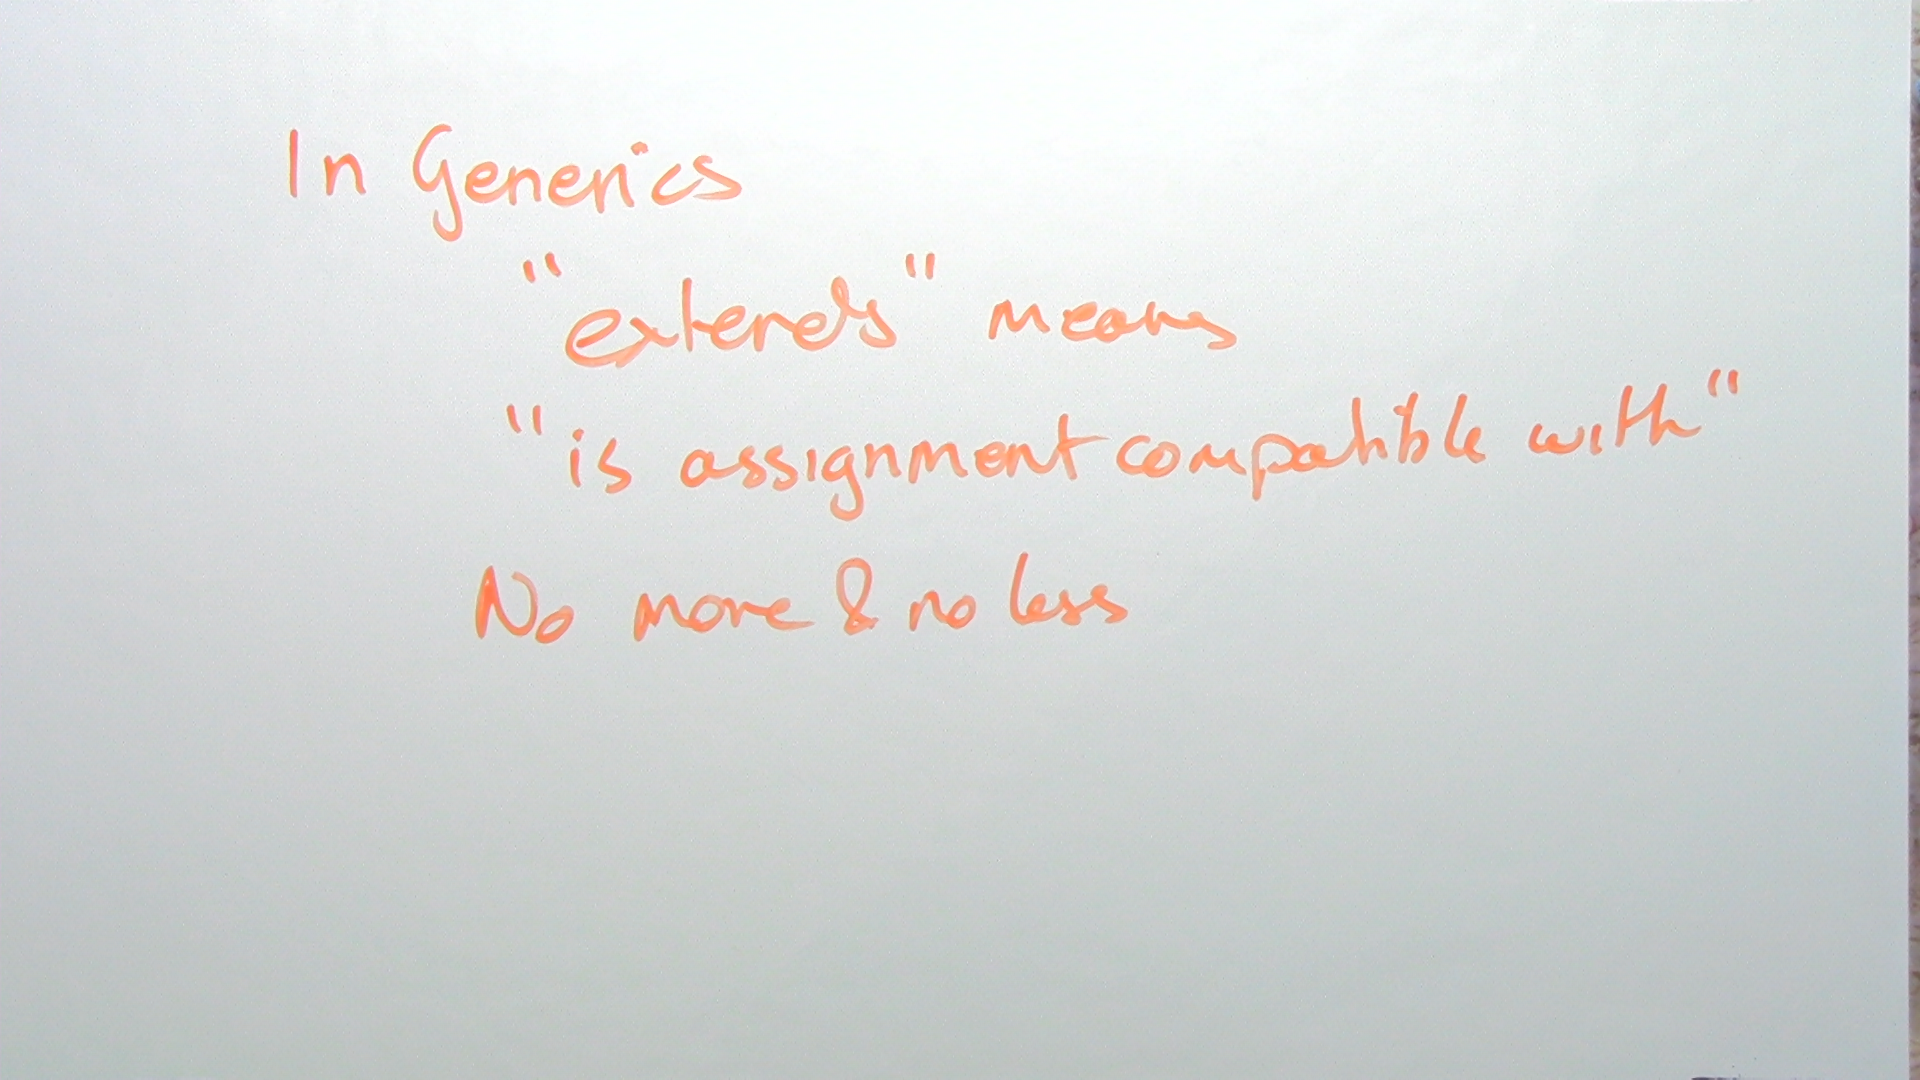 In Generics
"extends" means
"is assignment compatible with"
No more & no less